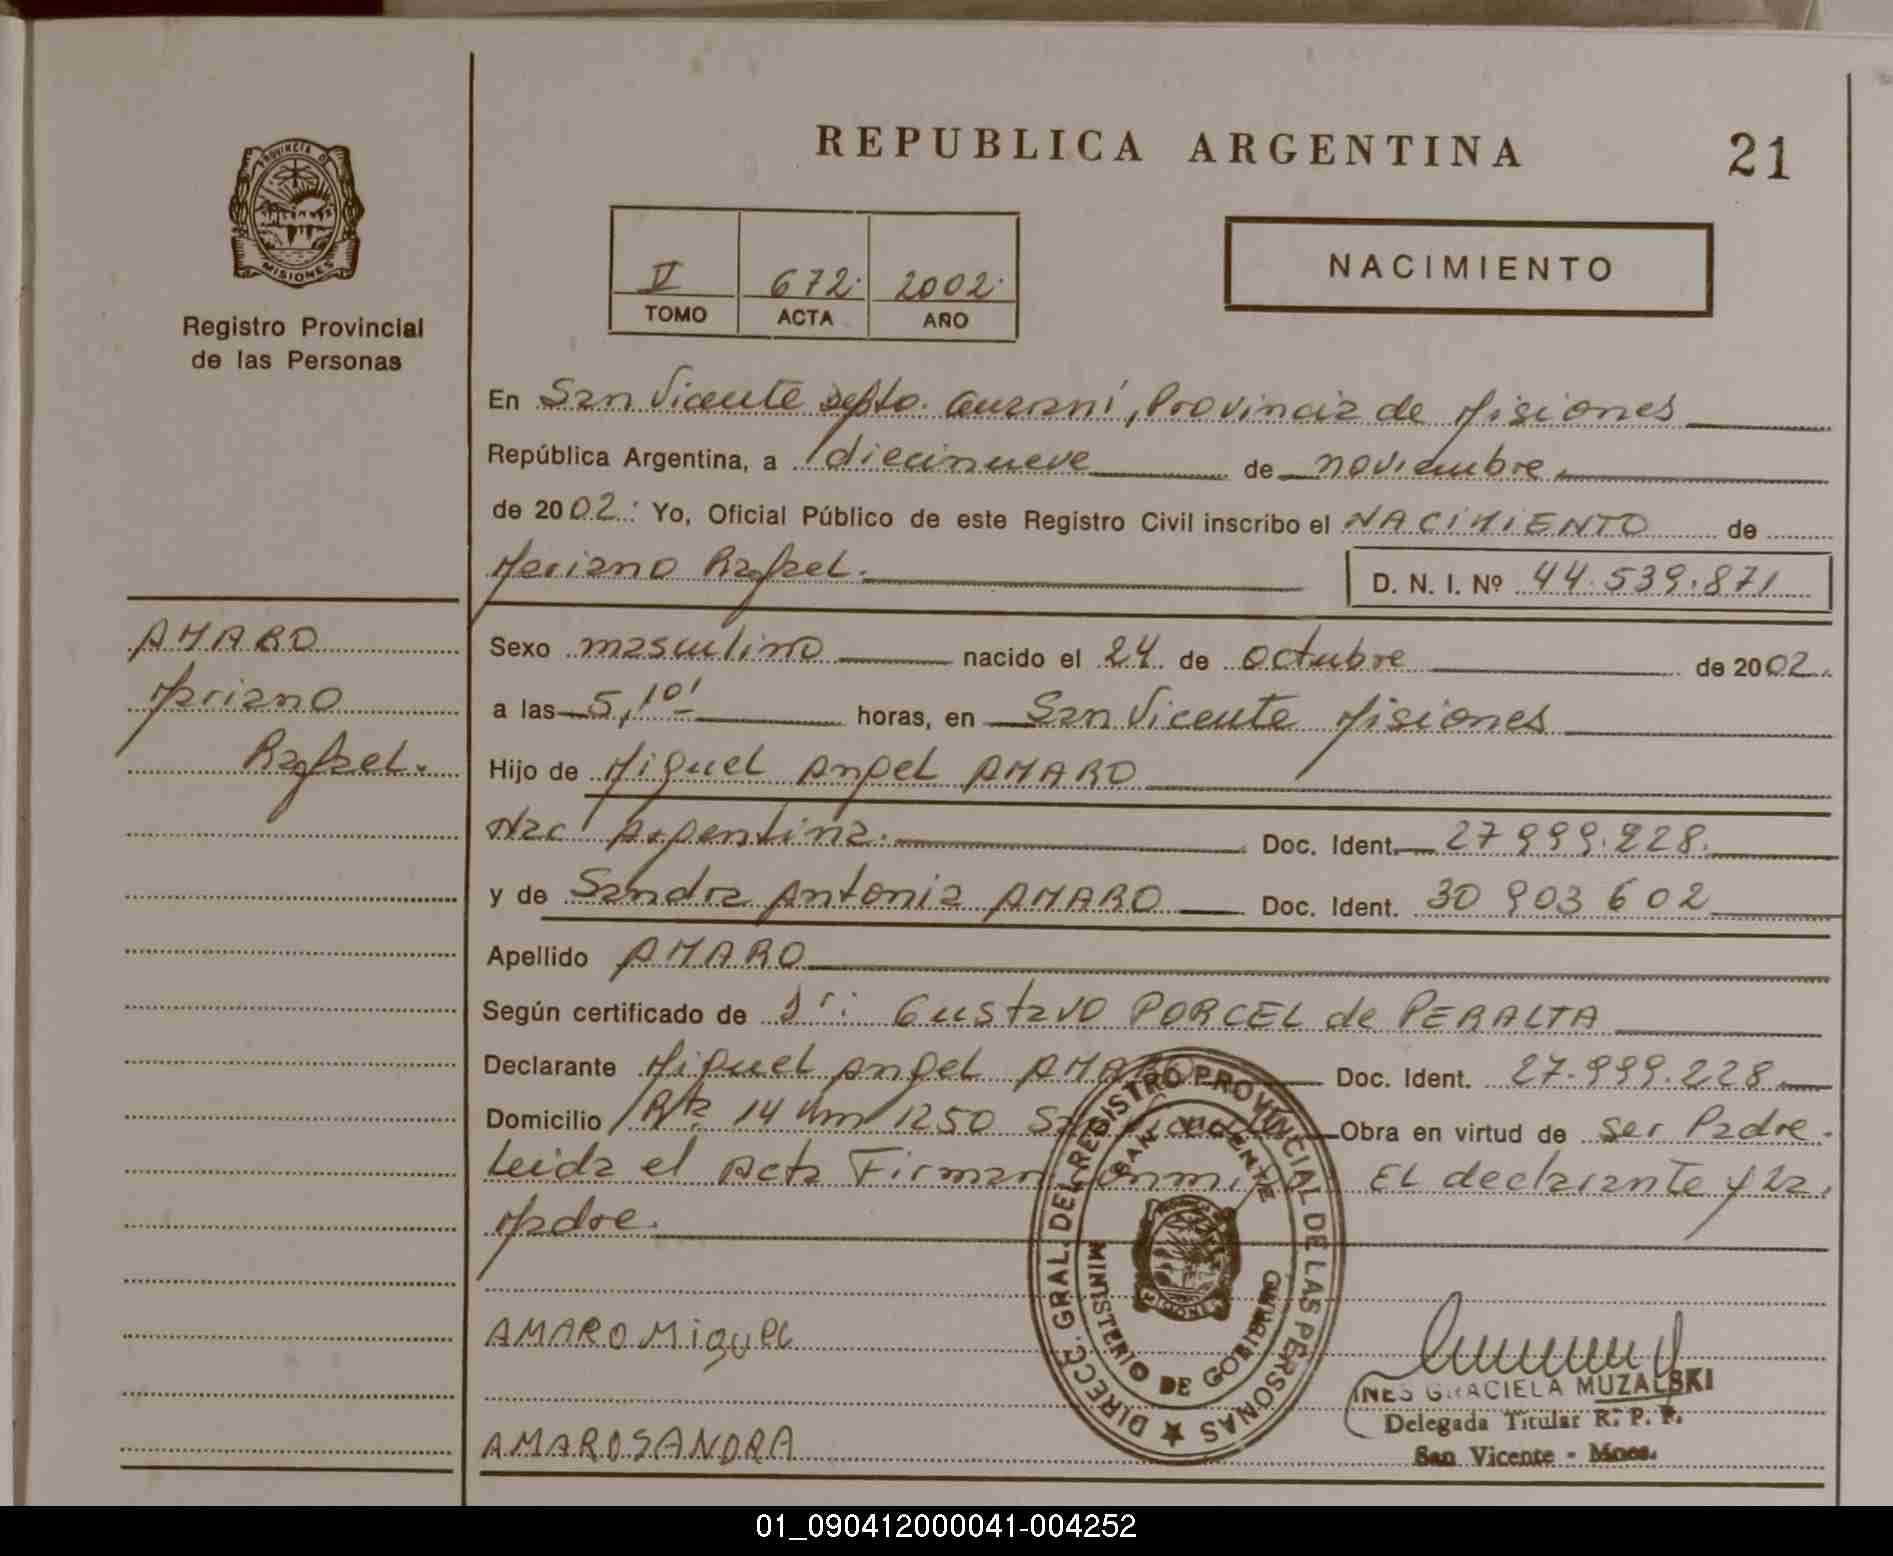 REPUBLICA ARGENTINA
21
PROVINCIA DE
MISIONES
Registro Provincial
de las Personas
V 672. 2002.
TOMO ACTA AÑO
NACIMIENTO
En San Vicente Depto. Guarani, Provincia de Misiones
República Argentina, a diecinueve de noviembre
de 2002. Yo, Oficial Público de este Registro Civil inscribo el NACIMIENTO de
Mariano Rafael.
D. N. I. Nº 44.539.871
AMARO
Mariano
Rafael.
Sexo masculino nacido el 24 de octubre de 2002.
a las 5,10' horas, en San Vicente Misiones
Hijo de Miguel Angel AMARO
Nac Argentina. Doc. Ident. 27 999.228.
y de Sandra Antonia AMARO Doc. Ident. 30 903 602
Apellido AMARO
Según certificado de Dr: Gustavo PORCEL de PERALTA
Declarante Miguel Angel AMARO Doc. Ident. 27.999.228
Domicilio Rta. 14 Km 1250 San Vicente Obra en virtud de ser Padre.
Leida el Acta Firman Conmigo EL declarante y la
Madre.
DIRECC. GRAL. DEL REGISTRO PROVINCIAL DE LAS PERSONAS
SAN VICENTE
MISIONES
MINISTERIO DE GOBIERNO
AMARO Miguel
INES GRACIELA MUZALSKI
Delegada Titular R. P. P.
San Vicente - Mnes.
AMARO SANDRA
01_090412000041-004252